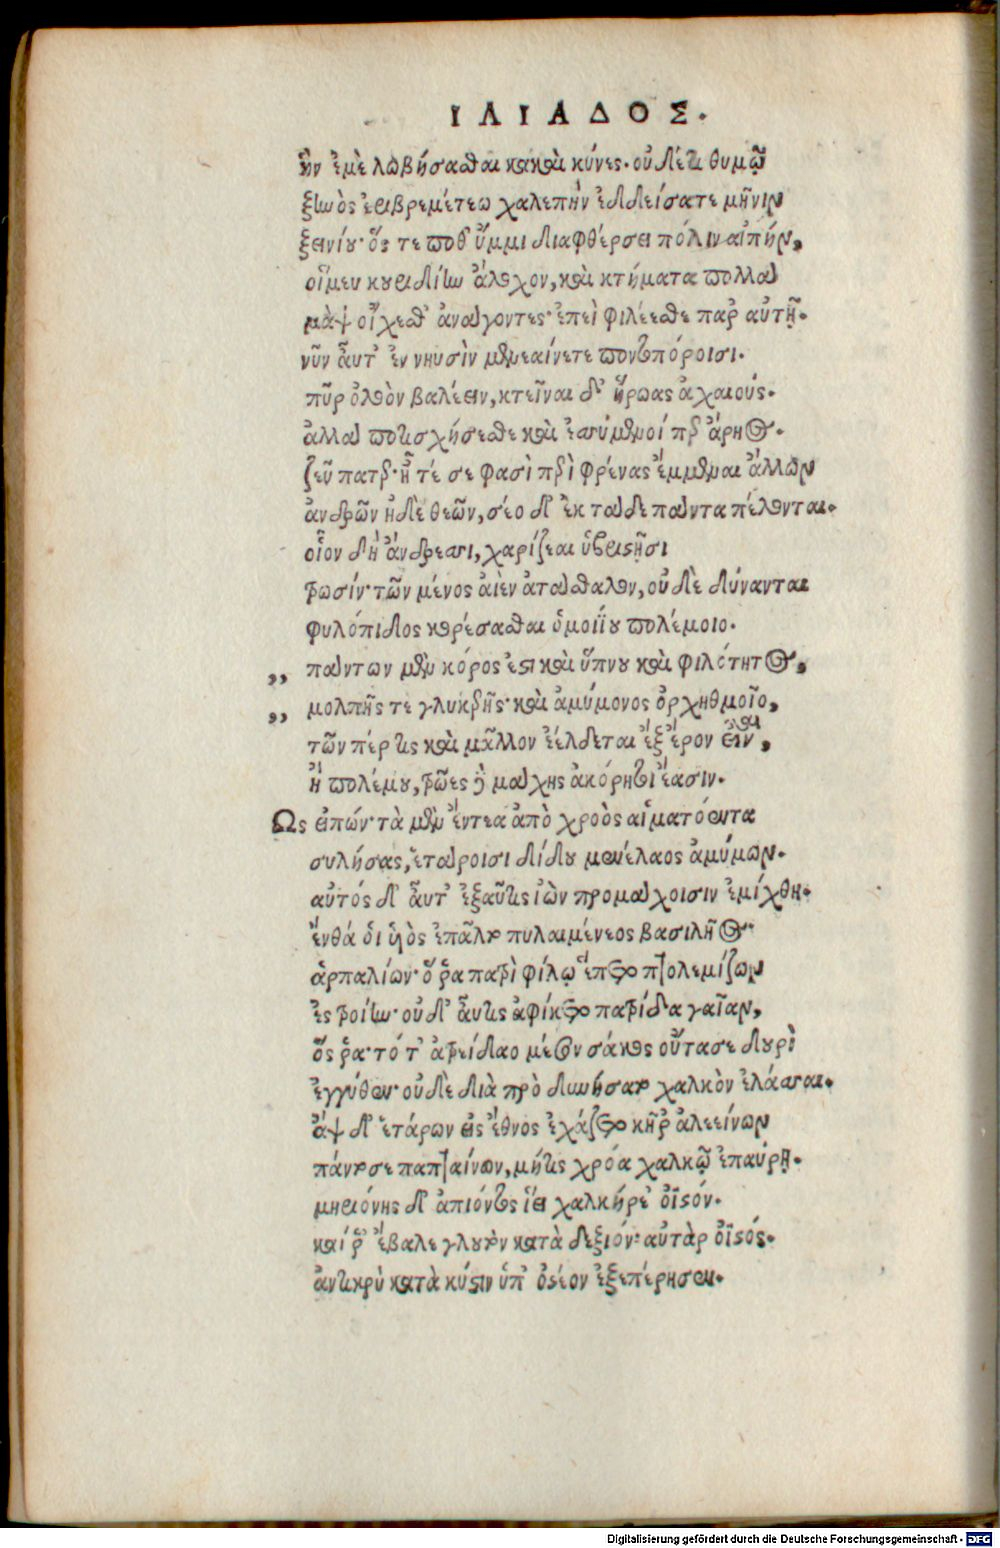 ΙΛΙΑΔΟΣ.
ἣν ἐμὲ λωβήσασθαι κακαὶ κύνες· οὐδέ τι θυμῷ
ζηνὸς ἐριβρεμέτεω χαλεπὴν ἐδδείσατε μῆνιν
ξεινίου· ὅς τε ποθ' ὔμμι διαφθέρσει πόλιν αἰπήν,
οἵ μευ κουριδίην ἄλοχον, καὶ κτήματα πολλὰ
μὰψ οἴχεσθ' ἀνάγοντες· ἐπεὶ φιλέεσθε παρ' αὐτῇ·
νῦν αὖτ' ἐν νηυσὶν μενεαίνετε ποντοπόροισι·
πῦρ ὀλοὸν βαλέειν, κτεῖναι δ' ἥρωας ἀχαιούς·
ἀλλά ποτι σχήσεσθε καὶ ἐσσύμενοί περ ἄρηος·
ζεῦ πάτερ· ἦ τέ σε φασὶ περὶ φρένας ἔμμεναι ἄλλων
ἀνδρῶν ἠδὲ θεῶν, σέο δ' ἐκ τάδε πάντα πέλονται·
οἷον δὴ ἄνδρεσσι, χαρίζεαι ὑβριστῇσι
τρωσίν· τῶν μένος αἰὲν ἀτάσθαλον, οὐδὲ δύνανται
φυλόπιδος κορέσασθαι ὁμοιΐου πολέμοιο·
,, πάντων μὲν κόρος ἐστὶ καὶ ὕπνου καὶ φιλότητος,
,, μολπῆς τε γλυκερῆς· καὶ ἀμύμονος ὀρχηθμοῖο,
τῶν πέρ τις καὶ μᾶλλον ἐέλδεται ἐξ ἔρον εἷναι,
ἢ πολέμου, τρῶες δὲ μάχης ἀκόρητοι ἔασιν·
Ὣς εἰπών· τὰ μὲν ἔντεα ἀπὸ χροὸς αἱματόεντα
συλήσας, ἑτάροισι δίδου μενέλαος ἀμύμων·
αὐτός δ' αὖτ' ἐξαῦτις ἰὼν προμάχοισιν ἐμίχθη·
ἔνθά οἱ υἱὸς ἐπᾶλτο πυλαιμένεος βασιλῆος
ἁρπαλίων· ὅ ῥα πατρὶ φίλῳ ἕπετο πτολεμίζων
ἐς τροίην· οὐδ' αὖτις ἀφίκετο πατρίδα γαῖαν,
ὅς ῥα· τότ' ἀτρείδαο μέσον σάκος οὔτασε δουρὶ
ἐγγύθεν· οὐδὲ διὰ πρὸ δυνήσατο χαλκὸν ἐλάσσαι·
ἂψ δ' ἑτάρων εἰς ἔθνος ἐχάζετο κῆρ' ἀλεείνων
πάντοσε παπταίνων, μήτις χρόα χαλκῷ ἐπαύρῃ·
μηριόνης δ' ἀπιόντος ἵει χαλκήρε' ὀϊστόν·
καί ῥ' ἔβαλε γλουτὸν κατὰ δεξιόν· αὐτὰρ ὀϊστός·
ἀντικρὺ κατὰ κύστιν ὑπ' ὀστέον ἐξεπέρησεν·
Digitalisierung gefördert durch die Deutsche Forschungsgemeinschaft - DFG